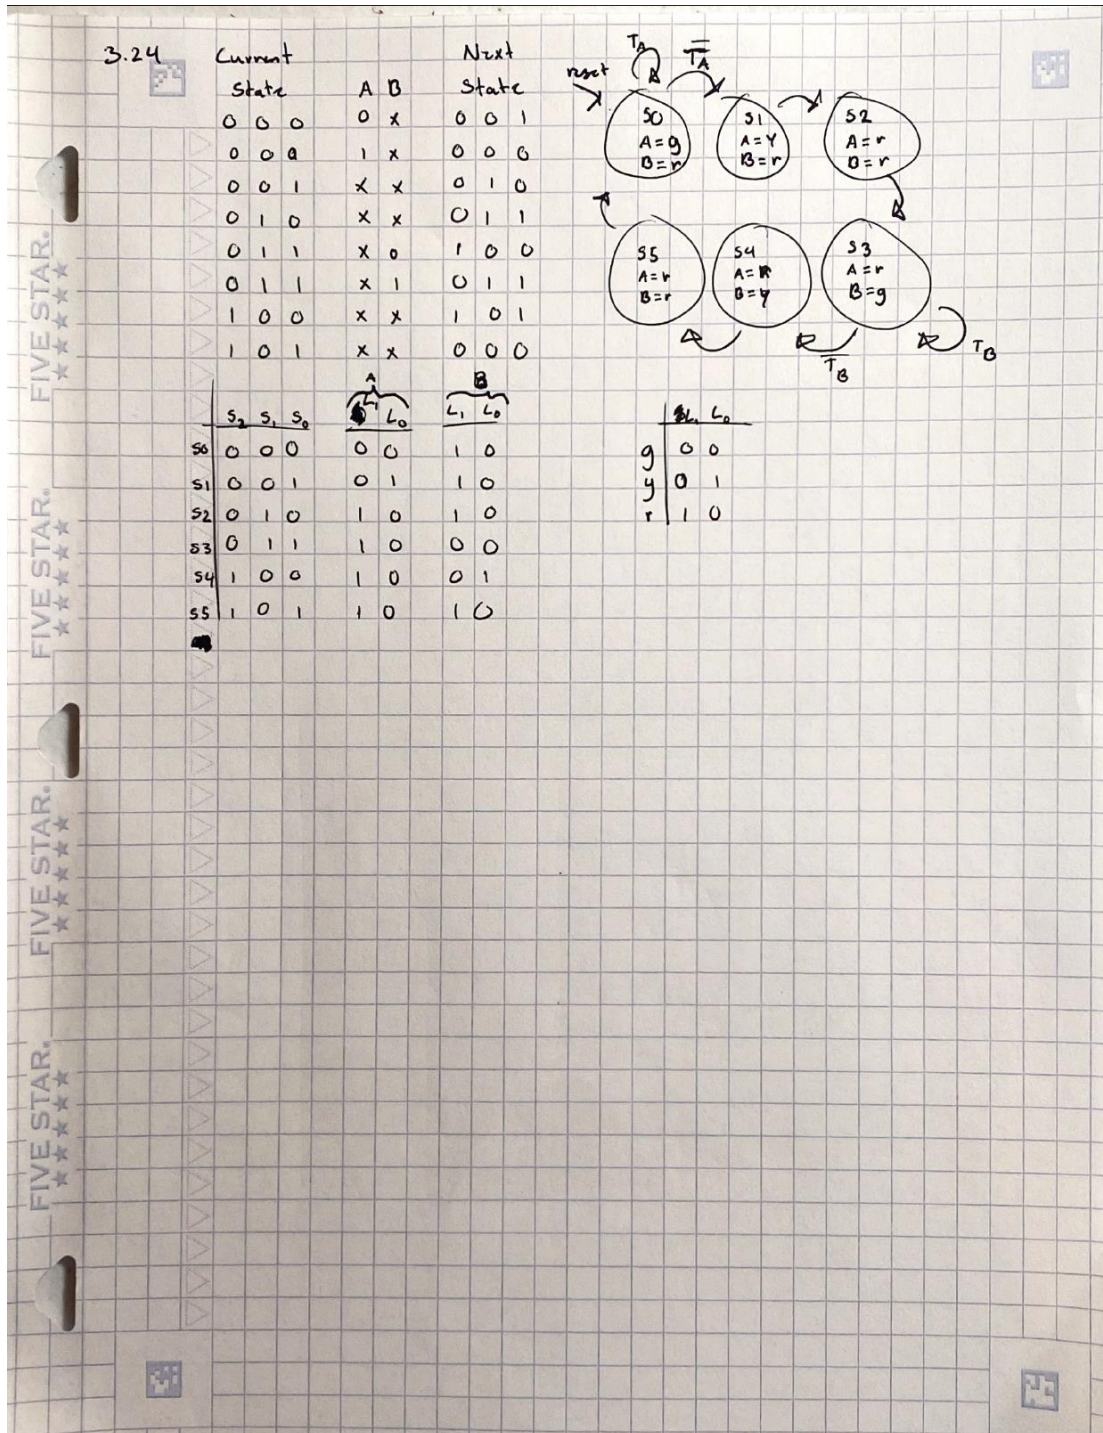 3.24 Current Next
State A B State
0 0 0 0 x 0 0 1
0 0 0 1 x 0 0 0
0 0 1 x x 0 1 0
0 1 0 x x 0 1 1
0 1 1 x 0 1 0 0
0 1 1 x 1 0 1 1
1 0 0 x x 1 0 1
1 0 1 x x 0 0 0
T_A
T̅_A
reset
S0
A=g
B=r
S1
A=Y
B=r
S2
A=r
B=r
S5
A=r
B=r
S4
A=R
B=y
S3
A=r
B=g
T̅_B
T_B
A B
S₂ S₁ S₀ L₁ L₀ L₁ L₀
S0 0 0 0 0 0 1 0
S1 0 0 1 0 1 1 0
S2 0 1 0 1 0 1 0
S3 0 1 1 1 0 0 0
S4 1 0 0 1 0 0 1
S5 1 0 1 1 0 1 0
L₁ L₀
g 0 0
y 0 1
r 1 0
FIVE STAR.
FIVE STAR.
FIVE STAR.
FIVE STAR.